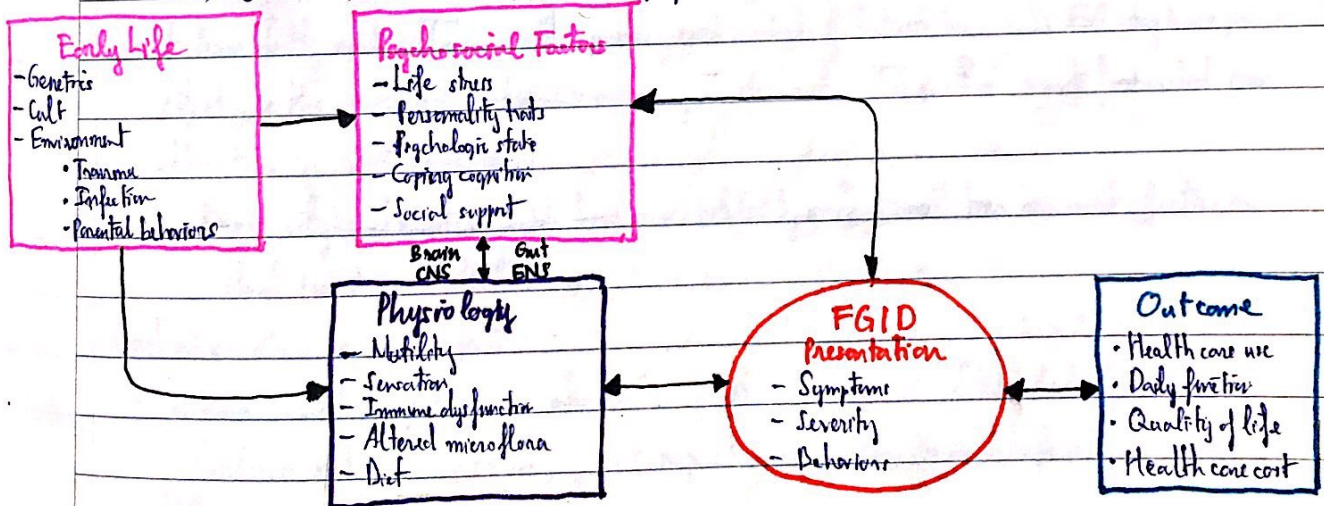 Early Life
- Genetics
- Cult
- Environment
• Trauma
• Infection
• Parental behaviors
Psychosocial Factors
- Life stress
- Personality traits
- Psychologic state
- Coping cognition
- Social support
Brain Gut
CNS ENS
Physiology
- Motility
- Sensation
- Immune dysfunction
- Altered microflora
- Diet
FGID
Presentation
- Symptoms
- Severity
- Behaviors
Outcome
• Health care use
• Daily function
• Quality of life
• Health care cost